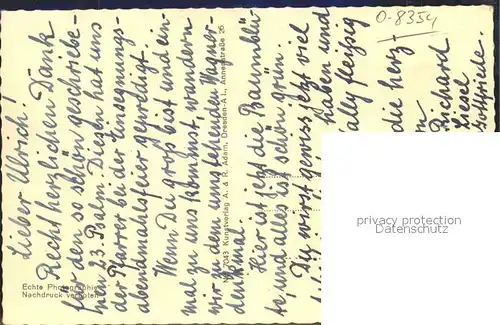 Lieber Ulrich!
Recht herzlichen Dank
für den so schön geschriebe-
nen 23. Psalm. Diesen hat uns
der Pfarrer bei der Einsegnungs-
abendmahlsfeier gepredigt.
Wenn Du groß bist und ein-
mal zu uns kommst, wandern
wir zu dem umstehenden Wagner-
denkmal.
Hier ist jetzt die Baumblü-
te, und alles ist schön grün.
Du wirst gewiss jetzt viel
haben und
fleißig
die herz-
Richard
Liesel
Gottfriede.
O-8354
Echte Photographie
Nachdruck verboten
7043 Kunstverlag A. & R. Adam, Dresden-A1, Annenstraße 26
privacy protection
Datenschutz